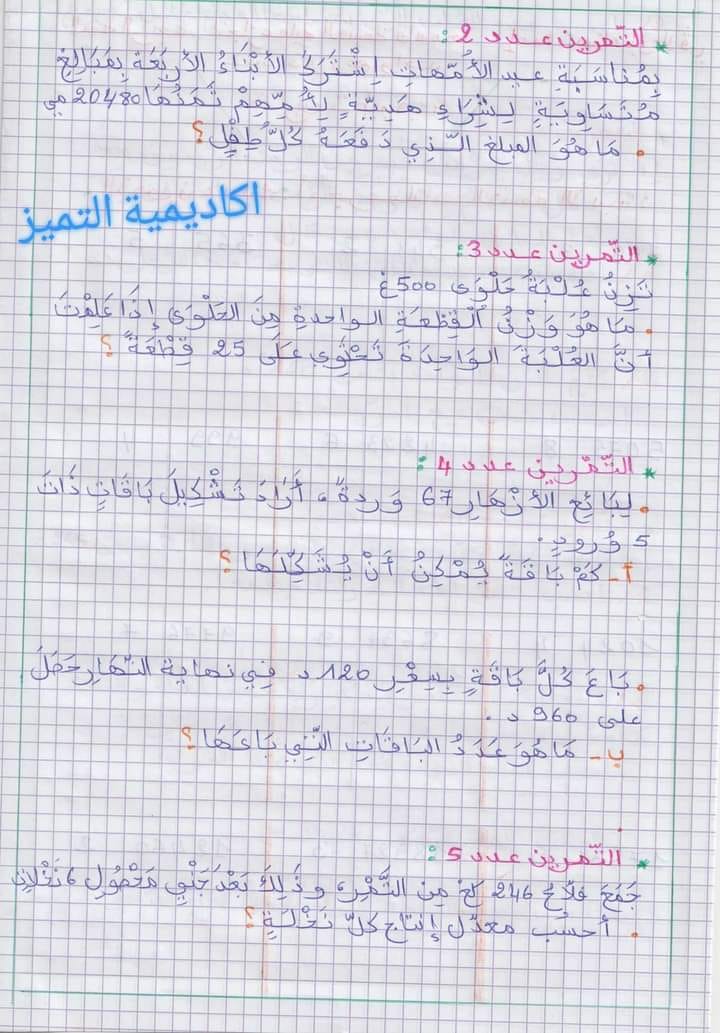 * التّمرين عدد 2 :
بِمُنَاسَبَةِ عيد الأُمّهاتِ اِشْتَرَكَ الأَبْنَاءُ الأَرْبَعَةُ بِمَبَالِغَ
مُتَسَاوِيَةٍ لِشِرَاءِ هَدِيّةٍ لِأُمِّهِمْ ثَمَنُهَا 20480 مي
. مَا هُوَ المبلغ الّذِي دَفَعَهُ كُلُّ طِفْلٍ؟
اكاديمية التميز
* التّمرين عدد 3:
تَزِنُ عُلْبَةُ حَلْوَى 500غ
. مَا هُوَ وَزْنُ الْقِطْعَةِ الواحدةِ مِنَ الحَلْوَى إِذَا عَلِمْتَ
أَنَّ العُلْبَةَ الوَاحِدَةَ تَحْتَوِي عَلَى 25 قِطْعَةً ؟
* التّمْرين عدد 4 :
. لِبَائِعِ الأَزْهَارِ 67 وَردةً، أَرَادَ تَشْكِيلَ بَاقَاتٍ ذَاتَ
5 وُرودٍ.
أ- كَمْ بَاقَةً يُمْكِنُ أَنْ يُشَكِّلَهَا ؟
. بَاعَ كُلَّ بَاقَةٍ بِسِعْرِ 120 د فِي نهاية النّهَارِ حَصَلَ
على 960 د .
ب- مَا هُوَ عَدَدُ البَاقَاتِ الّتِي بَاعَهَا ؟
* التّمرين عدد 5 :
جَمَعَ فَلاّحٌ 246 كغ مِنَ التَّمْرِ، وذَلِكَ بَعْدَ جَنْيِ مَحْصُولِ 6 نَخْلاتٍ
. أحسُب معدّل إنتاج كلّ نَخْلَةٍ ؟